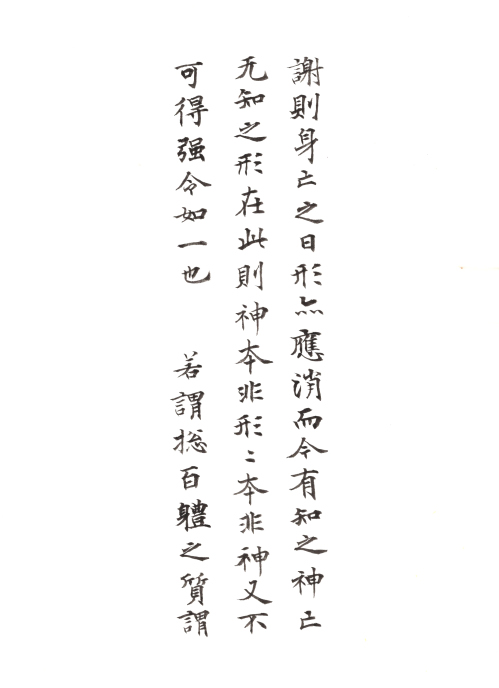 謝則身亡之日形亦應消而今有知之神亡
无知之形在此則神本非形〻本非神又不
可得强令如一也 若謂捴百體之質謂